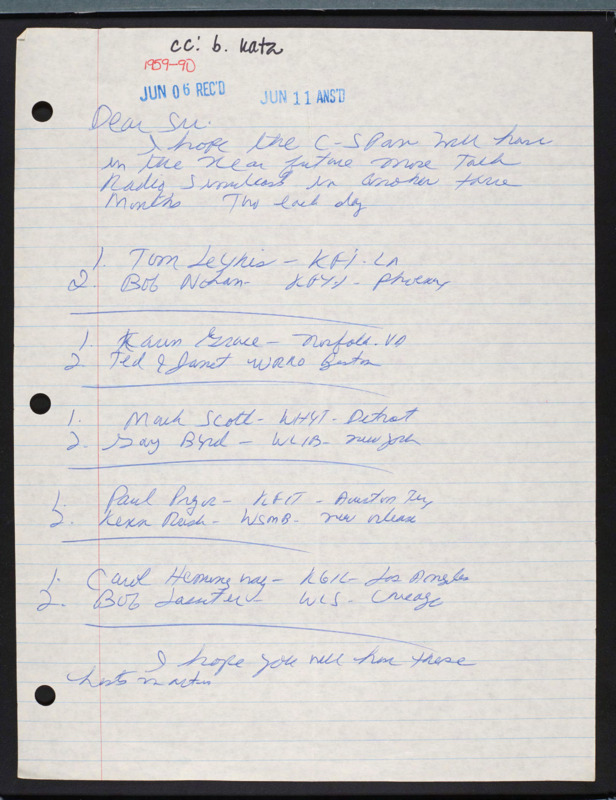 cc: b. Katz
1959-90
JUN 06 REC'D
JUN 11 ANS'D
Dear Sir.
I hope the C-SPan will have
in the near future more Talk
Radio Simulcast in another three
Months Two each day
1. Tom Leykis - KFI - LA
2. Bob Mohan - KFYI - Phoenix
1. Karin Grace - Norfolk. VA
2 Ted & Janet WRKO Boston
1. Mark Scott - WHYT - Detroit
2. Gary Byrd - WLIB - New York
1. Paul Pryor - KFIT - Austin Tex
2. Kenn Rush - WSMB - New Orleans
1. Carol Hemingway - KGIL - Los Angeles
2. Bob Lassiter - WLS - Chicago
I hope you will have these
hosts